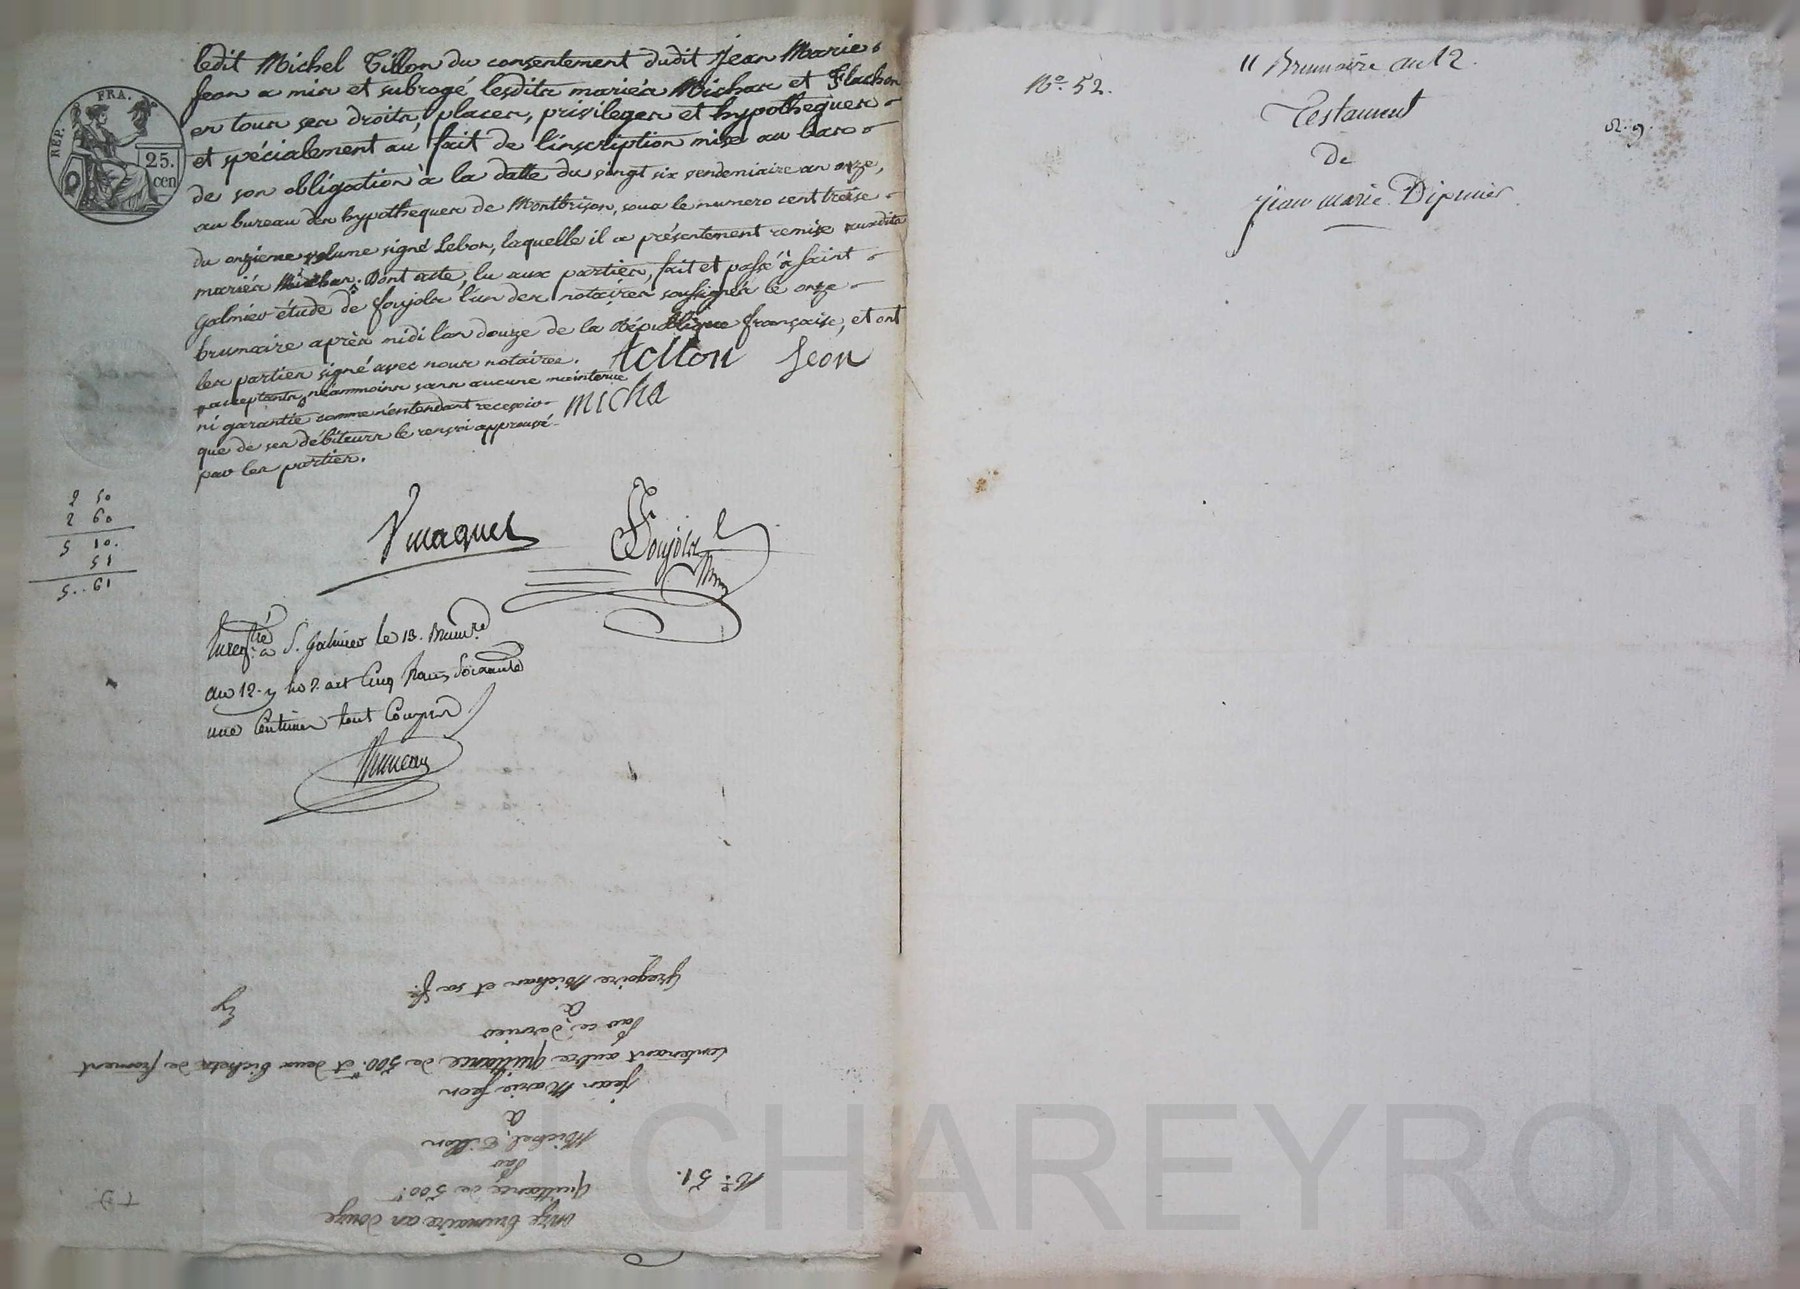 ledit Michel Tillon du consentement dudit Jean Marie
Jeon a mis et subrogé lesdits mariés Michar et Flachon
en tous ses droits, places, privileges et hypotheques
et spécialement au fait de l'inscription mise au bas
de son obligation à la datte du vingt six vendemiaire an onze,
au bureau des hypotheques de Montbrison, sous le numero cent treise
du onzieme volume signé Lebon, laquelle il a présentement remise auxdits
mariés Michar. Dont acte, lu aux parties, fait et passé à saint
galmier étude de foujols l'un des notaires soussignés le onze
brumaire après midi l'an douze de la République française, et ont
les parties signé avec nous notaires.
acceptants, néammoins sans aucune maintenue
ni garantie comme n'entendant recevoir
que de ses débiteurs le renvoi approuvé
par les parties.
tillon Jeon
micha
REP. FRA.
25.
cen
2 50
2 60
5 10.
51
5..61
Vmaquet Foujols
Enregtré à S. Galmier le 13. Brumre
an 12. Rt Cinq francs Soixante
une Centimes tout Compris
onze brumaire an douze
No. 51.
quittance de 500 f
par
Michel Tillon
à
Jean Marie Jeon
Contenant autre quittance de 500 f et deux bichets de froment
par ce dernier
à
Gregoire Michar et sa f.e
11 Brumaire an 12.
No. 52.
Testament
de
Jean marie Dipunier
R. 9.
CHAREYRON